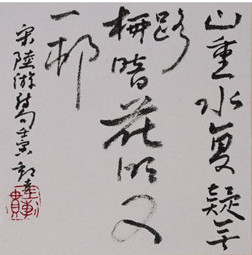 山重水复疑无
路
柳暗花明又
一邨
宋陸游詩句壬寅